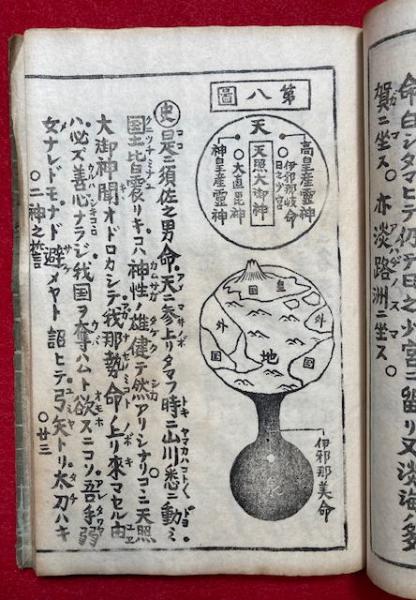 賀ニ坐ス。亦淡路洲ニ坐ス。
第八圖
天
高皇産霊神
伊邪那岐命
○日之少宮
天照大御神
○大直毘神
神皇産霊神
皇国
外国
外国
地
伊邪那美命
史 是ニ須佐之男命。天ニ参上リタマフ時ニ山川悉ニ動ミ。
国土皆震リキコハ神性ノ雄健テ然アリシナリコヽニ天照
大御神聞オドロカシテ我那勢命ノ上リ來マセル由
ハ必ズ善心ナラジ我国ヲ奪ハムト欲スニコソ吾手弱
女ナレドモナド避メヤト詔ヒテ弓矢トリ太刀ハキ
○二神之誓 ○廿三